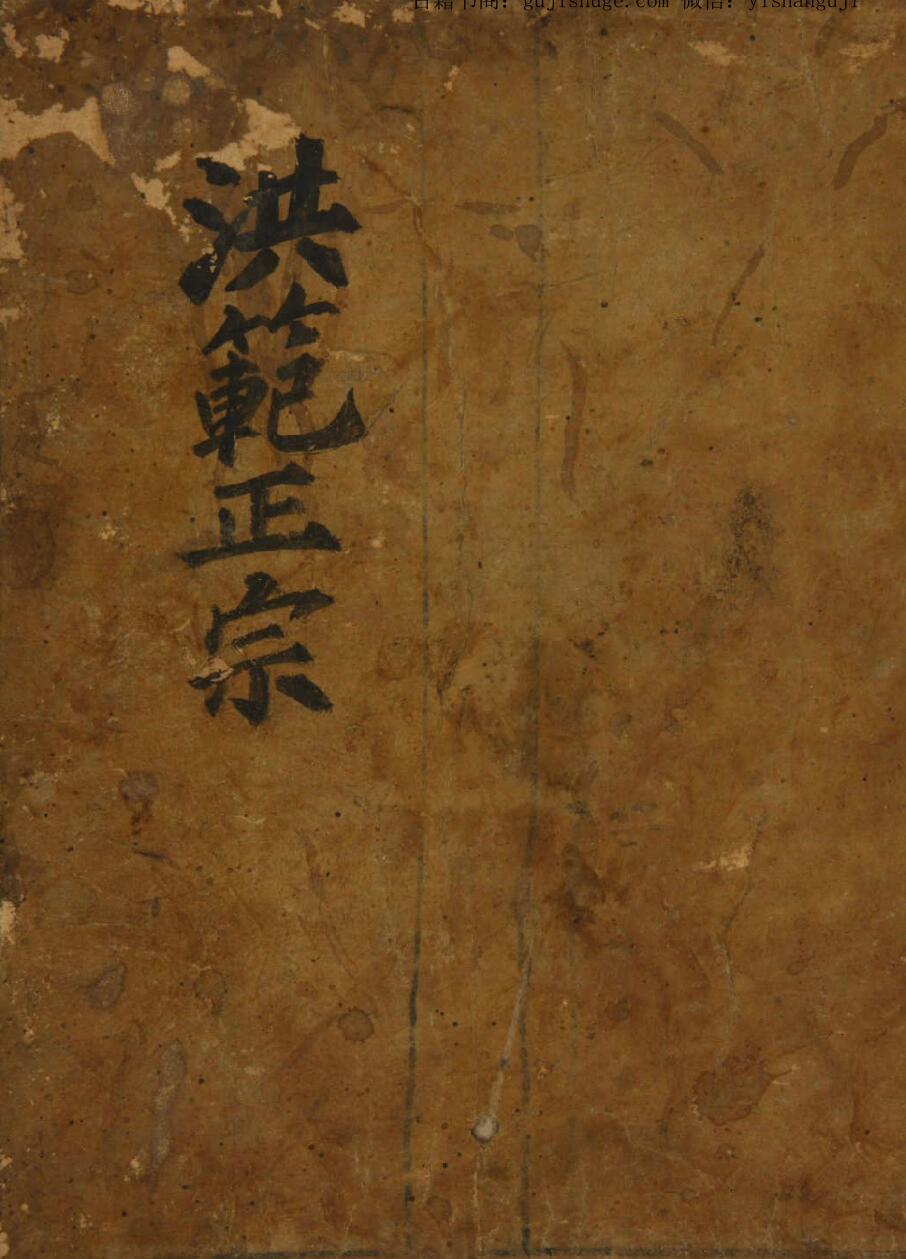 古籍书阁：gujishuge.com 微信：yishanguji
洪範正宗